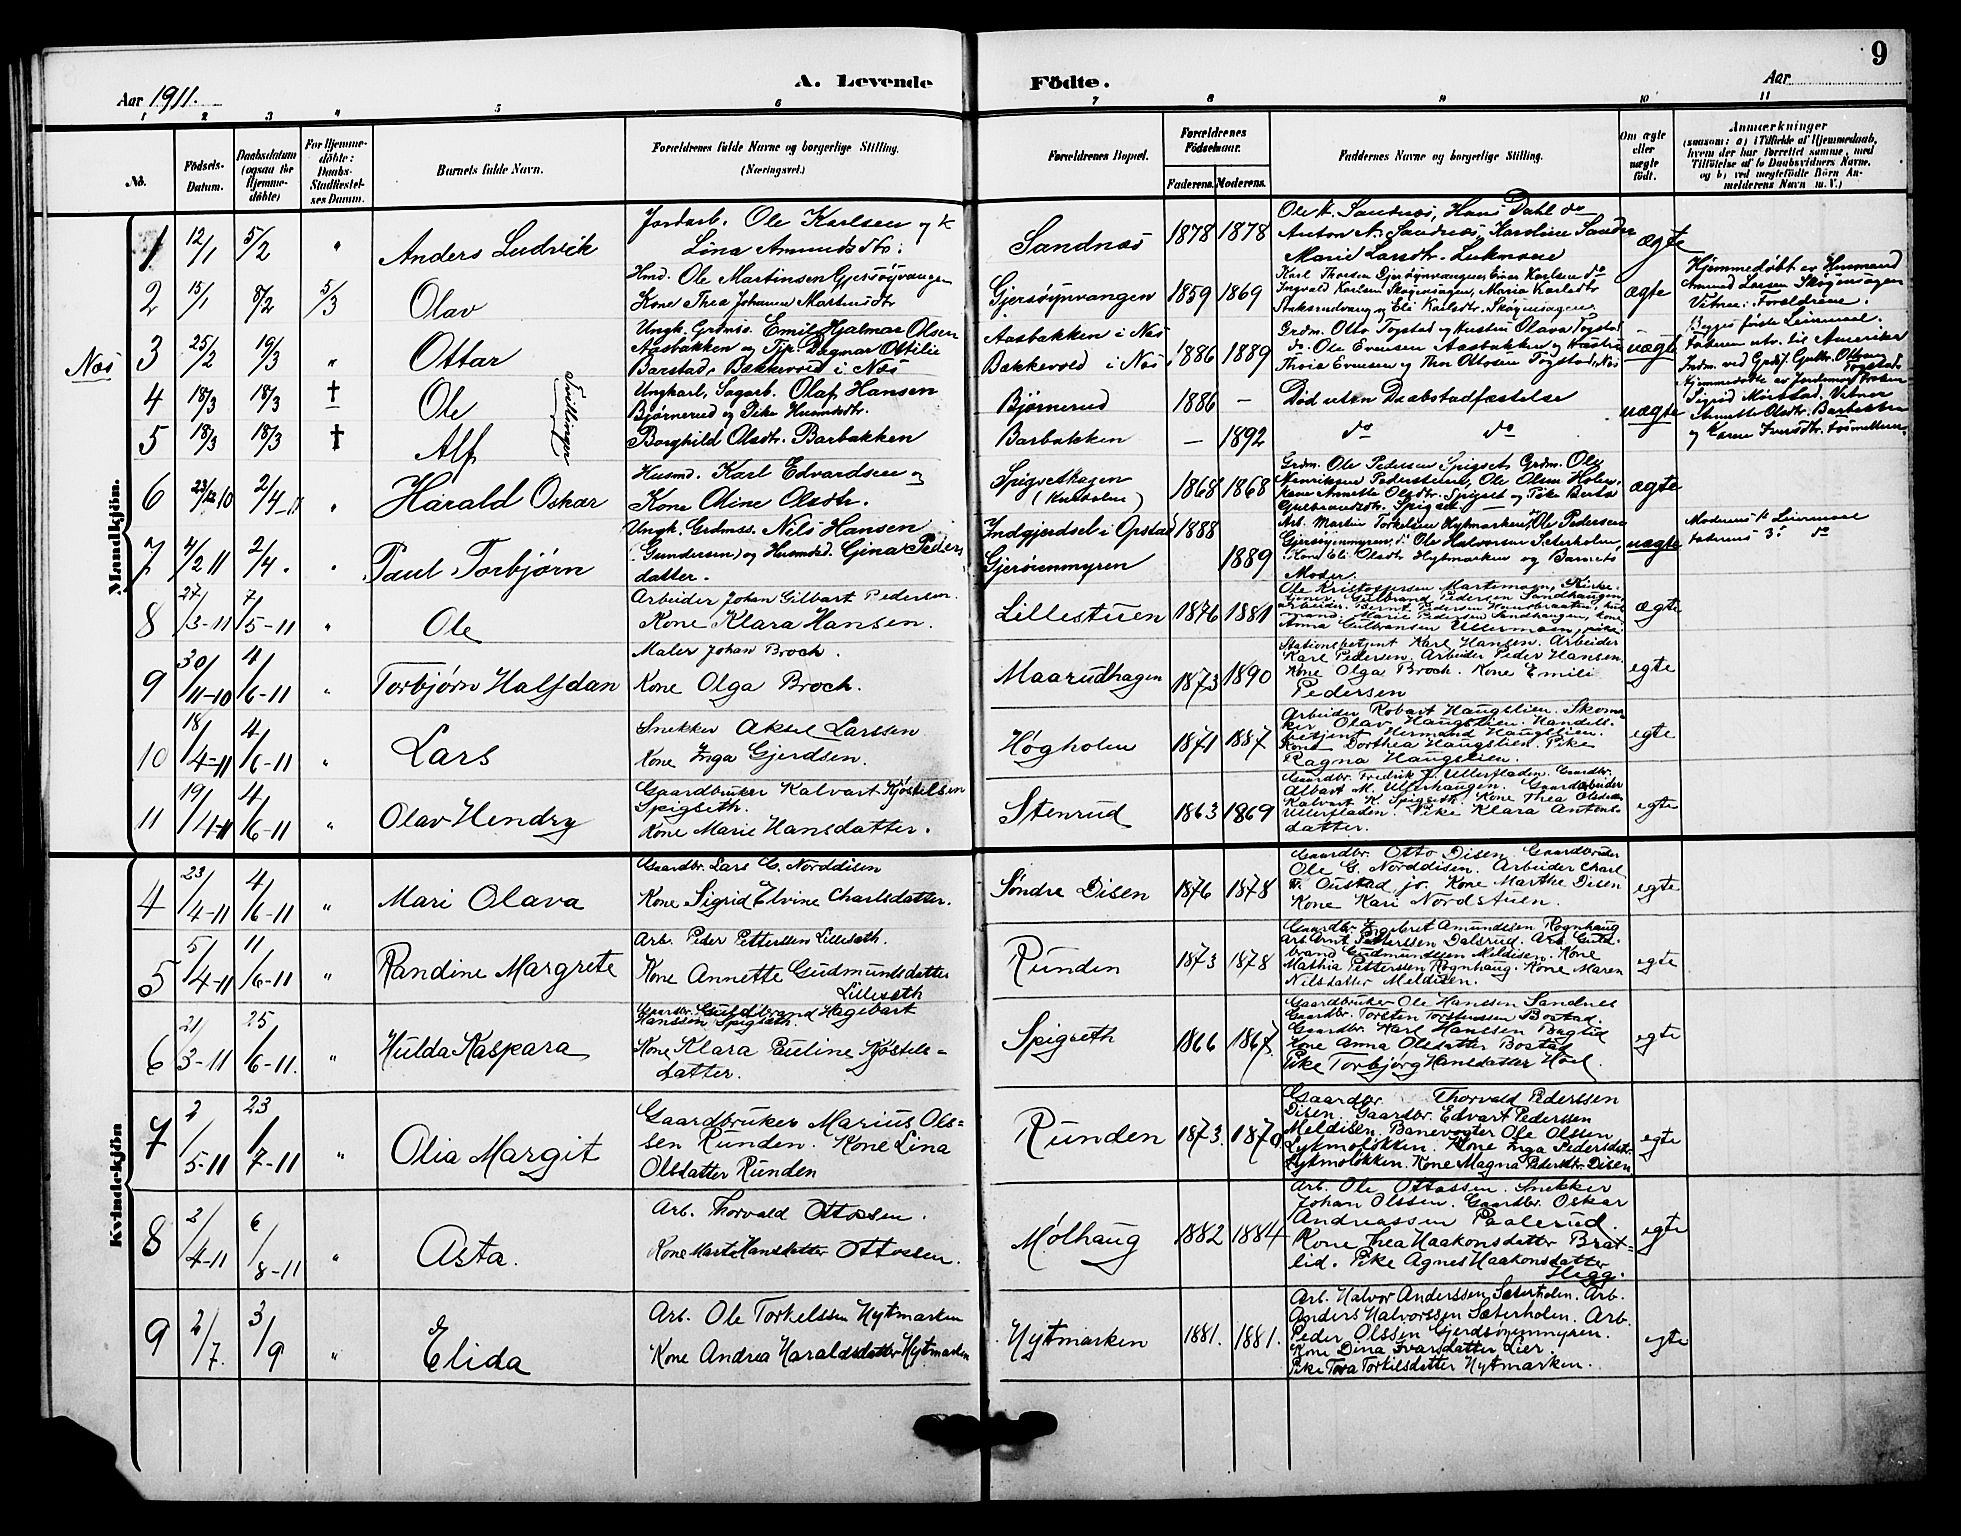 9
A. Levende Födte.
Aar 1911.
Aar
1 2 3 4 5 6 7 8 9 10 11
No.
Födsels-Datum.
Daabsdatum (ogsaa for Hjemme-döbte)
For Hjemme-döbte: Daabs-Stadfæstel-ses Datum.
Barnets fulde Navn.
Forældrenes fulde Navne og borgerlige Stilling. (Næringsvei.)
Forældrenes Bopæl.
Forældrenes Födselsaar.
Faderens. Moderens.
Faddernes Navne og borgerlige Stilling.
Om ægte eller uægte födt.
Anmærkninger
(saasom: a) i Tilfælde af Hjemmedaab, hvem der har forrettet samme, med Tilföielse af to Daabsvidners Navne, og b) ved uegtefödte Börn An-melderens Navn m. V.)
Næs
Mandkjön.
1 12/1 5/2 " Anders Ludvik
Jordarb. Ole Karlsen og k
Lina Amundsdtr.
Sandnæs 1878 1878
Ole K. Sandnæs, Hans Dahl do
Anton N. Sandnæs, Karoline Sandnæs
Marie Larsdtr.
ægte
2 15/1 8/2 5/3 Olav
Hmd. Ole Martinsen Gjersøyvangen
Kone Thea Johanne Martinsdtr
Gjersøynvangen 1859 1869
Karl Thorsen Gjersøynvangen, Einar Karlsen do
Ingvald Karlsen Skøginsagen, Maria Karlsdtr
og Eli Karlsdtr. Skøginsagen
ægte
Hjemmedøbt av Husmand
Amund Larsen Skøginsagen
Vitner: Forældrene.
3 25/2 19/3 " Ottar
Ungk. Grdmss. Emil Hjalmar Olsen
Aasbakken og Pip. Dagmar Ottilie
Barstad, Bakkevold i Næs
Aasbakken i Næs
Bakkevold i Næs 1886 1889
Grdm. Otto Togstad og Hustru Olava Togstad
do. Ole Evensen Aasbakken og Hustru
Thora Evensen og Thor Ottosen Togstad, Næs
uægte
Begges første Leiermaal.
Faderen utv. til Amerika
Indm. ved Grdbr. Guttorm Ottosen
Togstad.
4 18/3 18/3 † Ole
5 18/3 18/3 † Alf
Tvillinger
Ungkarl, Sagarb. Olaf Hansen
Bjørnerud og Pike Husmdsdtr.
Borghild Olsdtr. Barbakken
Bjørnerud 1886 —
Barbakken — 1892
Død uten Daabstadfæstelse
do do
uægte
Hjemmedøbte av Jordemor Frøken
Sigrid Mørstad. Vitner
Annette Olsdtr. Barbakken
og Karen Iversdtr.
6 23/12 10 2/4-11 " Harald Oskar
Husmd. Karl Edvardsen og
Kone Oline Olsdtr.
Spigsethagen
1868 1868
Grdm. Ole Pedersen Spigset, Grdm. Ole
Henriksen Pederstuen, Ole Olsen Holen,
kone Annette Olsdtr. Spigset og Pike Berta
Gulbrandsdtr. Spigset —
ægte
7 4/2 11 2/4. " Paul Torbjørn
Ungk. Grdmss. Nils Hansen
(Gundersen) og Husmdsd. Gina Peders
datter.
Indgjerdsel i Opstad 1888
Gjersøienmyren 1889
Arb. Martin Torkelsen Hytmarken, Ole Pedersen
Gjersøienmyren, do Ole Halvorsen Sæterholen,
Kone Eli Olsdtr. Hytmarken og Barnets
Moder.
uægte
Moderens 1ste Leiermaal
Faderens 3. do
8 27/3-11 7/5-11 " Ole
Arbeider Johan Gilbart Pedersen.
Kone Klara Hansen.
Lillestuen 1876 1881
Ole Kristoffersen Martinmoen, Kirke-
tjener. Gulbrand Pedersen Sandhaugen,
arbeider. Bernt Pedersen Hansbraaten, hus-
mand. Marie Pedersen Sandhaugen, kone
Anna Gulbransen Ullermoen, pike.
ægte
9 30/11-10 4/6-11 " Torbjørn Halfdan
Maler Johan Broch.
Kone Olga Broch.
Maarudhagen 1873 1890
Stationsbetjent Karl Hansen. Arbeider
Karl Pedersen. Arbeider Peder Hansen.
Kone Olga Broch. Kone Emilie
Pedersen
egte
10 18/4-11 4/6-11 " Lars
Snekker Aksel Larssen.
Kone Inga Gjerdsen.
Høgholen 1871 1887
Arbeider Robart Haugslien. Skoma-
ker Olav Haugslien. Handels-
betjent Hermand Haugslien.
Kone Dorthea Haugslien. Pike
Ragna Haugslien.
egte
11 19/4-11 4/6-11 " Olav Hendry
Gaardbruker Kalvart Kjøstelsen
Spigseth.
Kone Marie Hansdatter.
Stenrud 1863 1869
Gaardbr. Fredrik J. Ullerfladen. Gaardbr.
Albart M. Ullerhaugen. Gaardarbeider
Kalvart K. Spigseth. Kone Thea Olsdatter
Ullerfladen. Pike Klara Antons-
datter.
egte
Kvindekjön
4 23/4-11 4/6-11 " Mari Olava
Gaardbr. Lars G. Norddisen
Kone Sigrid Elvine Charlsdatter.
Søndre Disen 1876 1878
Gaardbr. Otto Disen. Gaardbruker
Ole G. Norddisen. Arbeider Charl
Fr. Oustad jr. Kone Marthe Disen
Kone Kari Nordstuen.
egte
5 5/4-11 11/6-11 " Randine Margrete
Arb. Peder Petterssen Lilleseth.
Kone Annette Gudmundsdatter
Lilleseth
Runden 1873 1878
Gaardbr. Engebret Amundssen Rognhaug
Arb. Arnt Petterssen Dalsrud. Arb. Guld-
brand Gudmundssen Meldisen. Kone
Mathia Petterssen Rognhaug. Kone Maren
Nilsdatter Meldisen.
egte
6 21/3-11 25/6-11. " Hulda Kaspara
Gaardbr. Guldbrand Hagebart
Hanssen Spigseth.
Kone Klara Pauline Kjøstels-
datter.
Spigseth 1866 1867
Gaardbruker Ole Hanssen Sandnes
Gaardbr. Torsten Torstenssen Bostad.
Gaardbr. Karl Hanssen Baglid
Kone Anna Olsdatter Bostad
Pike Torbjørg Hansdatter Hoel.
egte
7 2/5-11 23/7-11 " Olia Margit
Gaardbruker Marius Ols-
sen Runden. Kone Lina
Olsdatter Runden
Runden 1873. 1870
Gaardbr. Thorvald Pederssen
Disen. Gaardbr. Edvart Pederssen
Meldisen. Banevogter Ole Olssen
Lykmoløkken. Kone Inga Pedersdtr.
Lykmoløkken. Kone Magna Pedersdtr. Disen
egte
8 2/4-11 6/8-11 " Asta.
Arb. Thorvald Ottossen.
Kone Marte Hansdatter Ottossen.
Mølhaug 1882 1884
Arb. Ole Ottossen. Snekker
Johan Olssen. Gaardbr. Oskar
Andreassen Paalerud.
Kone Thea Haakonsdatter Brat-
lid. Pike Agnes Haakonsdatter
Hegg.
egte
9 2/7 3/9 " Elida
Arb. Ole Torkelssen Hytmarken
Kone Andrea Haraldsdatter Hytmarken
Hytmarken 1881. 1881.
Arb. Halvor Anderssen Sæterholen. Arb.
Anders Halvorssen Sæterholen. Arb.
Peder Olssen Gjerdsøienmyren.
Kone Dina Ivarsdatter Lier.
Pike Tora Torkilsdatter Hytmarken.
egte